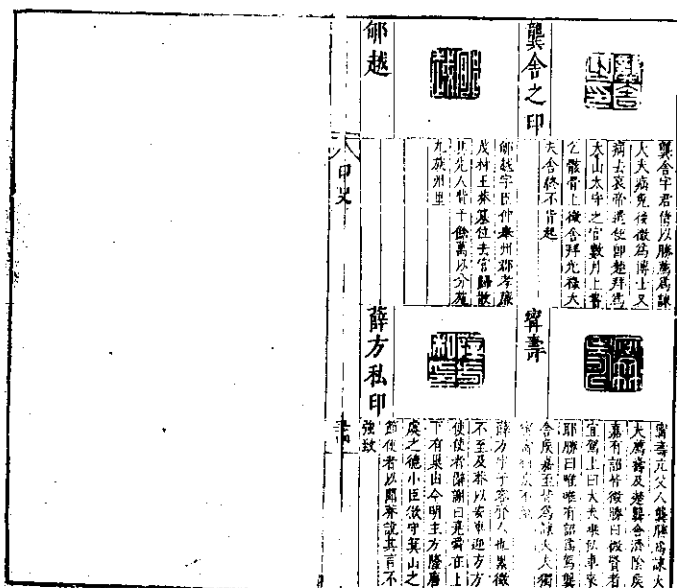 龔舍之印
龔舍字君倩以勝薦爲諫
大夫病免後徵爲博士又
病去哀帝遣使即楚拜爲
太山太守之官數月上書
乞骸骨上徵舍拜光祿大
夫舍終不肯起
郇越
郇越字臣仲舉州郡孝廉
茂材王莽簒位去官歸散
其先人貲千餘萬以分施
九族州里
甯壽
甯壽亢父人龔勝爲諫
大薦壽及楚龔舍濟陰侯
嘉有詔皆徵勝曰徵賢者
宜駕上曰大夫乘私車來
耶勝曰唯唯有詔爲駕龔
舍侯嘉至皆爲諫大夫獨
不至
薛方私印
薛方字子容齊人也累徵
不至及莽以安車迎方方
使使者辭謝曰堯舜在上
下有巢由今明主方隆唐
虞之德小臣欲守箕山之
節使者以聞莽說其言不
強致
印史